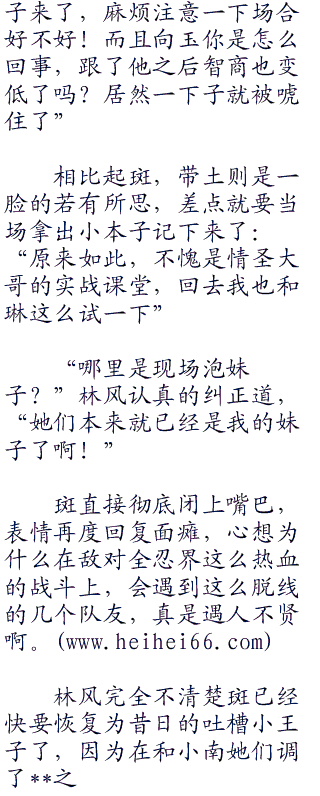 子来了，麻烦注意一下场合
好不好！而且向玉你是怎么
回事，跟了他之后智商也变
低了吗？居然一下子就被唬
住了”
相比起斑，带土则是一
脸的若有所思，差点就要当
场拿出小本子记下来了：
“原来如此，不愧是情圣大
哥的实战课堂，回去我也和
琳这么试一下”
“哪里是现场泡妹
子？”林风认真的纠正道，
“她们本来就已经是我的妹
子了啊！”
斑直接彻底闭上嘴巴，
表情再度回复面瘫，心想为
什么在敌对全忍界这么热血
的战斗上，会遇到这么脱线
的几个队友，真是遇人不贤
啊。(www.heihei66.com)
林风完全不清楚斑已经
快要恢复为昔日的吐槽小王
子了，因为在和小南她们调
了**之